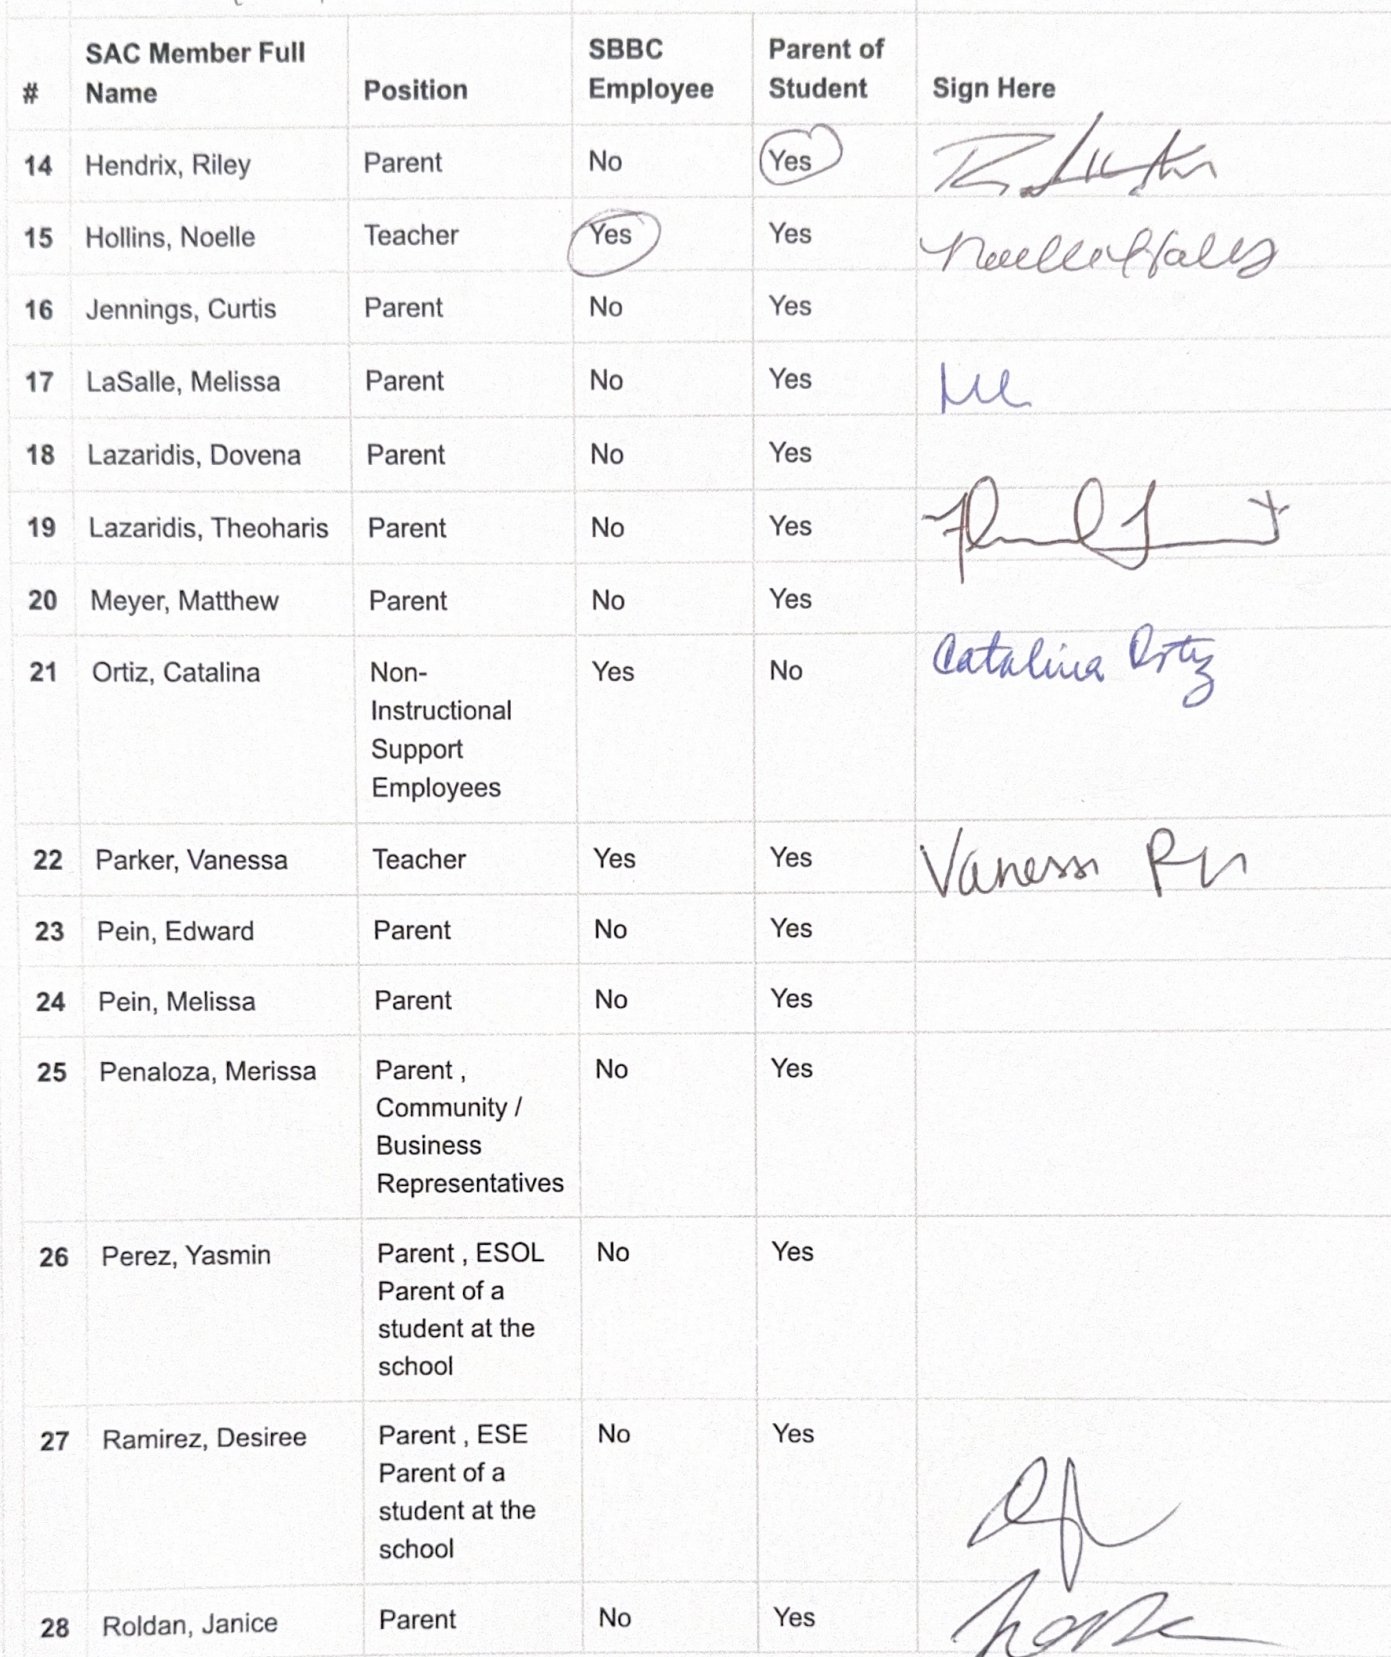 SAC Member Full SBBC Parent of
# Name Position Employee Student Sign Here
14 Hendrix, Riley Parent No Yes
15 Hollins, Noelle Teacher Yes Yes Noelle
16 Jennings, Curtis Parent No Yes
17 LaSalle, Melissa Parent No Yes
18 Lazaridis, Dovena Parent No Yes
19 Lazaridis, Theoharis Parent No Yes
20 Meyer, Matthew Parent No Yes
21 Ortiz, Catalina Non- Yes No Catalina Ortiz
Instructional
Support
Employees
22 Parker, Vanessa Teacher Yes Yes Vanessa
23 Pein, Edward Parent No Yes
24 Pein, Melissa Parent No Yes
25 Penaloza, Merissa Parent , No Yes
Community /
Business
Representatives
26 Perez, Yasmin Parent , ESOL No Yes
Parent of a
student at the
school
27 Ramirez, Desiree Parent , ESE No Yes
Parent of a
student at the
school
28 Roldan, Janice Parent No Yes